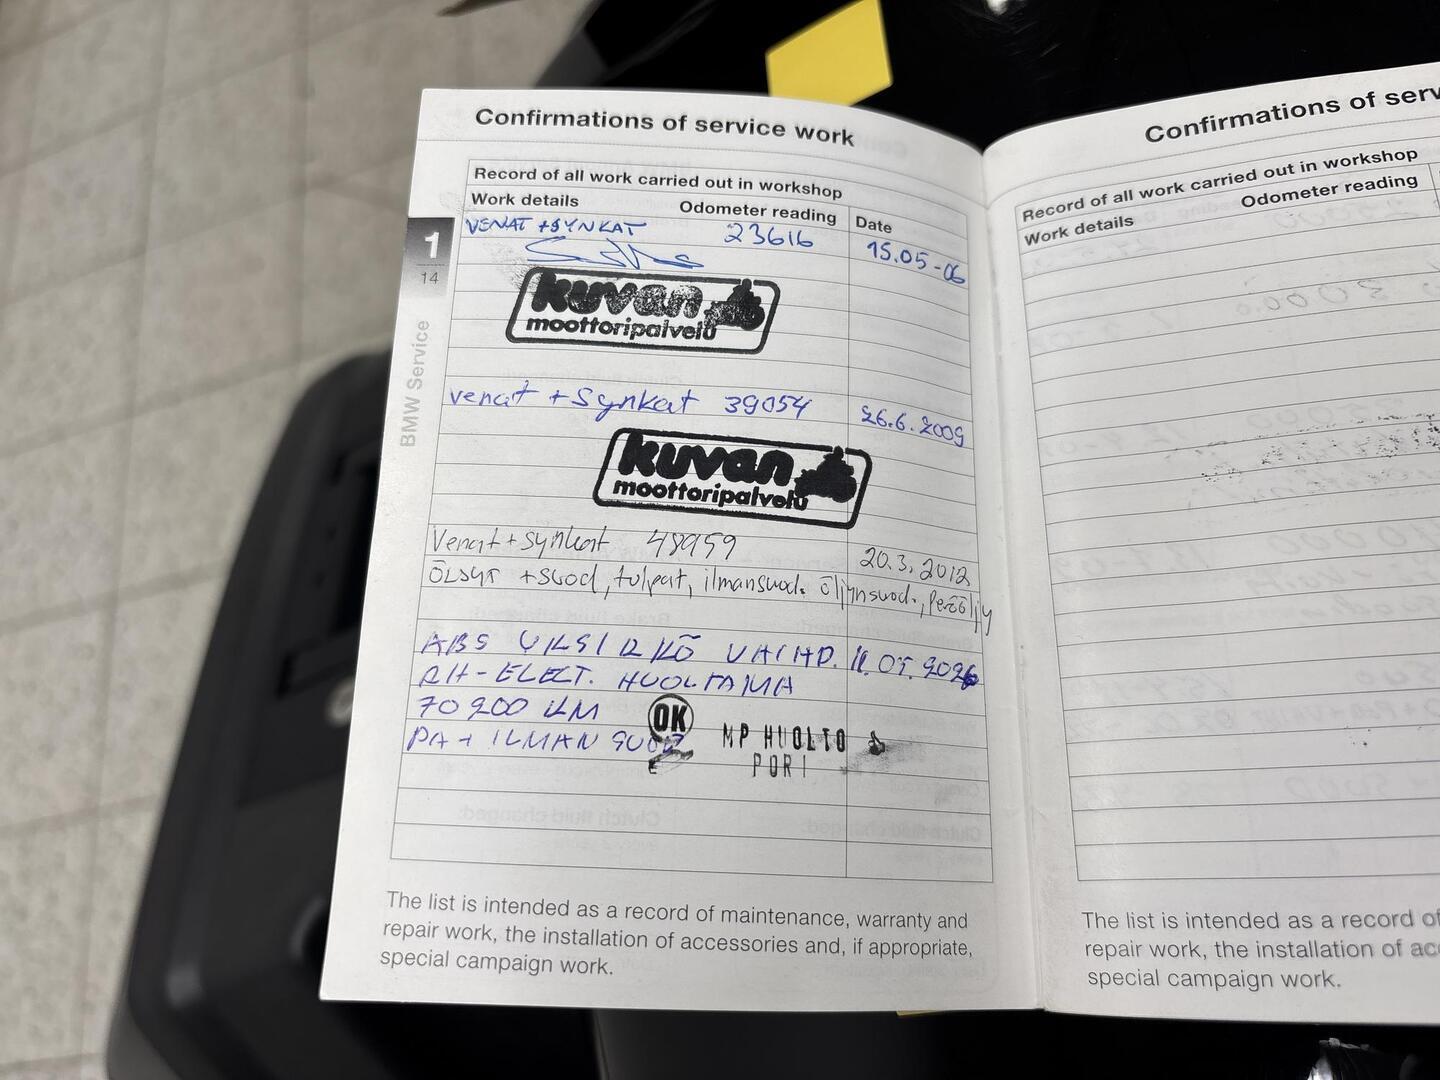 Confirmations of service work
Record of all work carried out in workshop
Work details Odometer reading Date
VENAT + SYNKAT 23616 15.05-06
kuvan
moottoripalvelu
1
14
BMW Service
venat + Synkat 39054 26.6.2009
kuvan
moottoripalvelu
Venat + synkat 48959 20.3.2012
ÖLJYT + suod, tulpat, ilmansuod. öljynsuod., peräöljy
ABS YKSIKKÖ VAIHD. 11.05.2026
RH-ELECT. HUOLTAMA
70200 KM OK MP HUOLTO
PA + ILMAN SUOD PORI
The list is intended as a record of maintenance, warranty and
repair work, the installation of accessories and, if appropriate,
special campaign work.
Confirmations of serv
Record of all work carried out in workshop
Work details Odometer reading
The list is intended as a record of
repair work, the installation of acc
special campaign work.